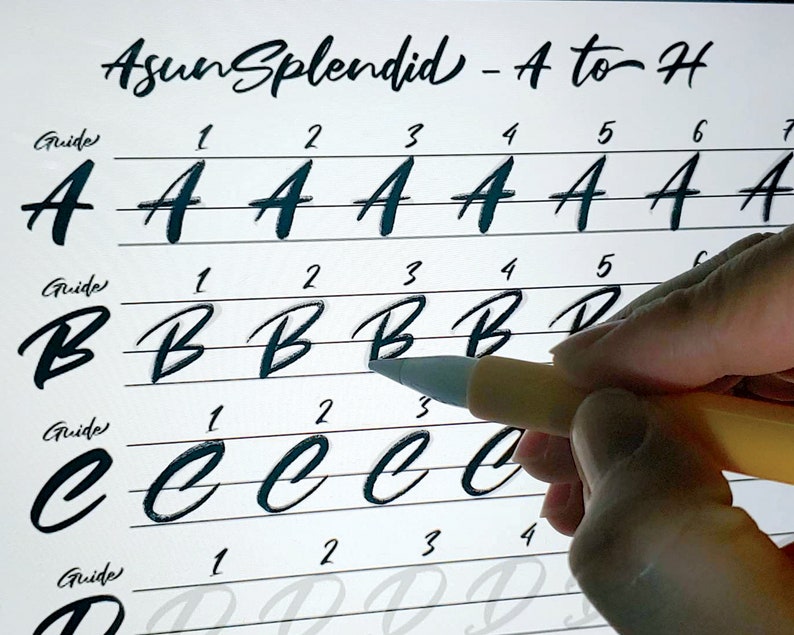 AsunSplendid - A to H
Guide 1 2 3 4 5 6 7
A A A A A A A A
Guide 1 2 3 4 5 6
B B B B B B
Guide 1 2 3
C C C C C
Guide 1 2 3 4
D D D D D D